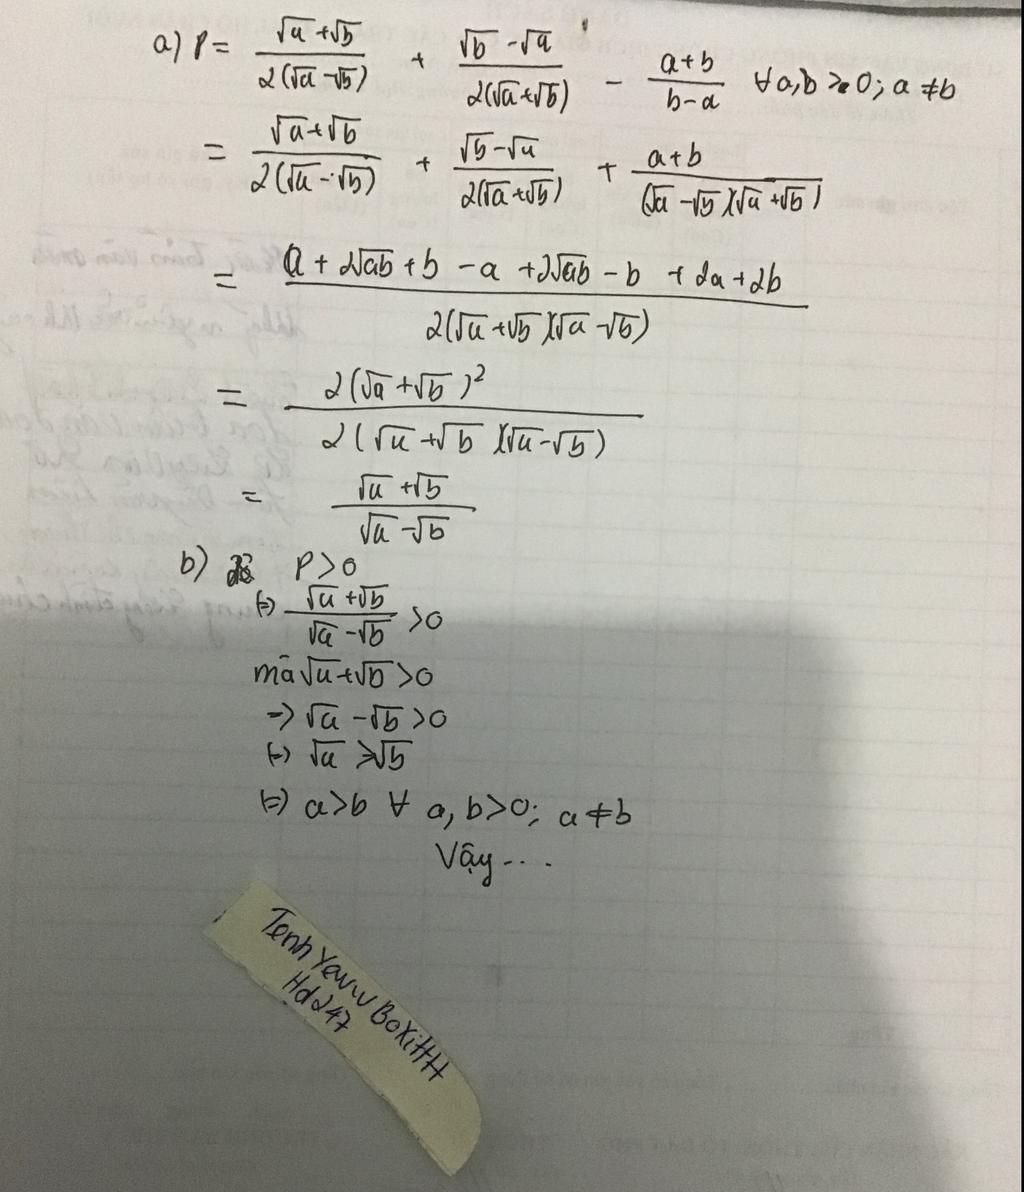 a) P = (√a + √b)/(2(√a - √b)) + (√b - √a)/(2(√a + √b)) - (a + b)/(b - a) ∀ a, b > 0; a ≠ b
= (√a + √b)/(2(√a - √b)) + (√b - √a)/(2(√a + √b)) + (a + b)/((√a - √b)(√a + √b))
= (a + 2√ab + b - a + 2√ab - b + 2a + 2b)/(2(√a + √b)(√a - √b))
= (2(√a + √b)²)/(2(√a + √b)(√a - √b))
= (√a + √b)/(√a - √b)
b) để P > 0
(=) (√a + √b)/(√a - √b) > 0
mà √a + √b > 0
=> √a - √b > 0
(=) √a > √b
(=) a > b ∀ a, b > 0; a ≠ b
Vậy ...
Hd247